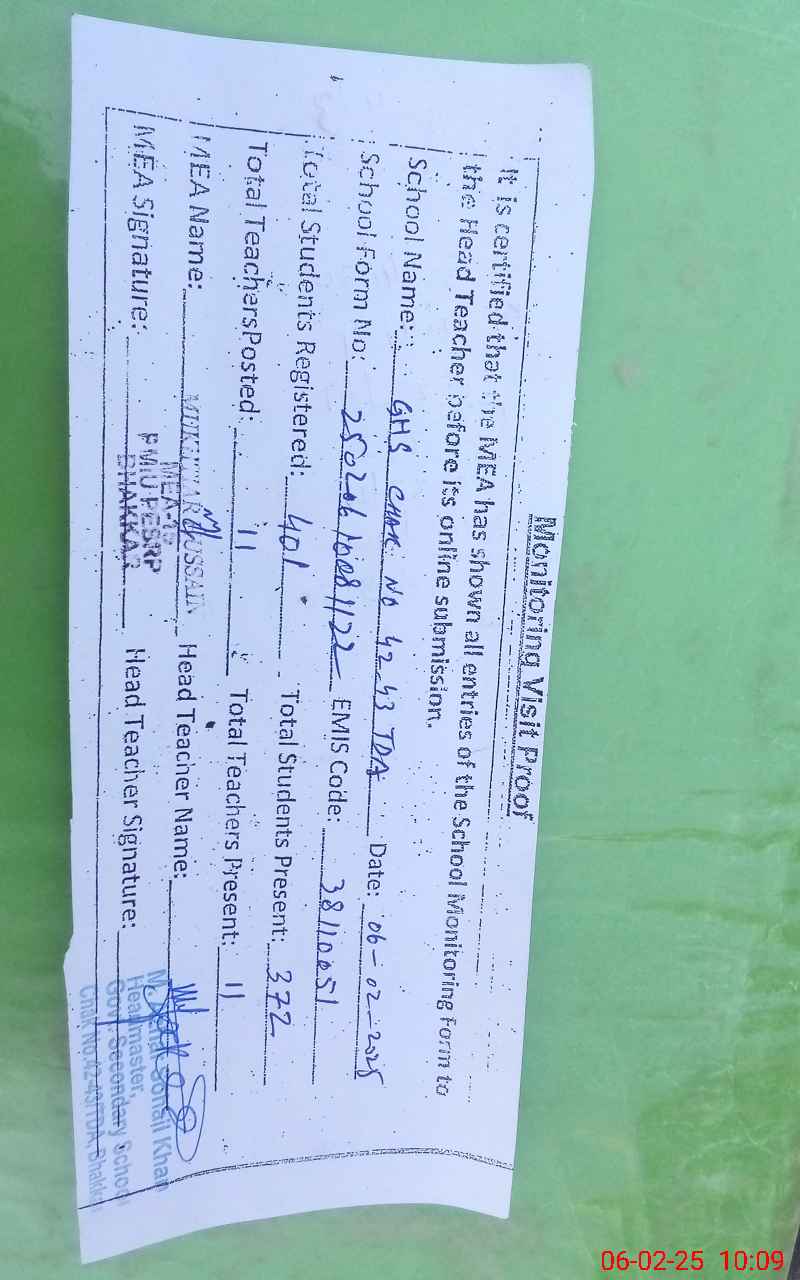 Monitoring Visit Proof
It is certified that the MEA has shown all entries of the School Monitoring Form to
the Head Teacher before its online submission.
School Name: GHS CHAK NO 42-43 TDA Date: 06-02-2025
School Form No: EMIS Code: 38110051
Total Students Registered: 401 Total Students Present: 372
Total Teachers Posted: 11 Total Teachers Present: 11
MEA Name: HUSSAIN Head Teacher Name:
MEA-
PMIU PESRP
BHAKKAR
MEA Signature: Head Teacher Signature:
Khan
Headmaster,
Govt. Secondary School
Chak No.42-43/TDA, Bhakkar
06-02-25 10:09